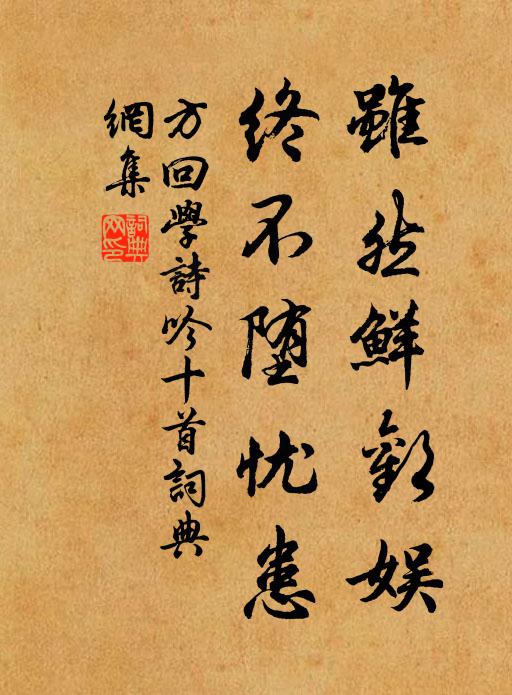 雖然鮮歡娱
終不堕忧患
方回學詩吟十首詞典
網集
詞典網印